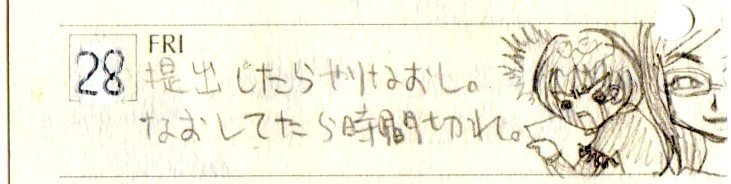 28 FRI
提出したらやりなおし。
なおしてたら時間切れ。